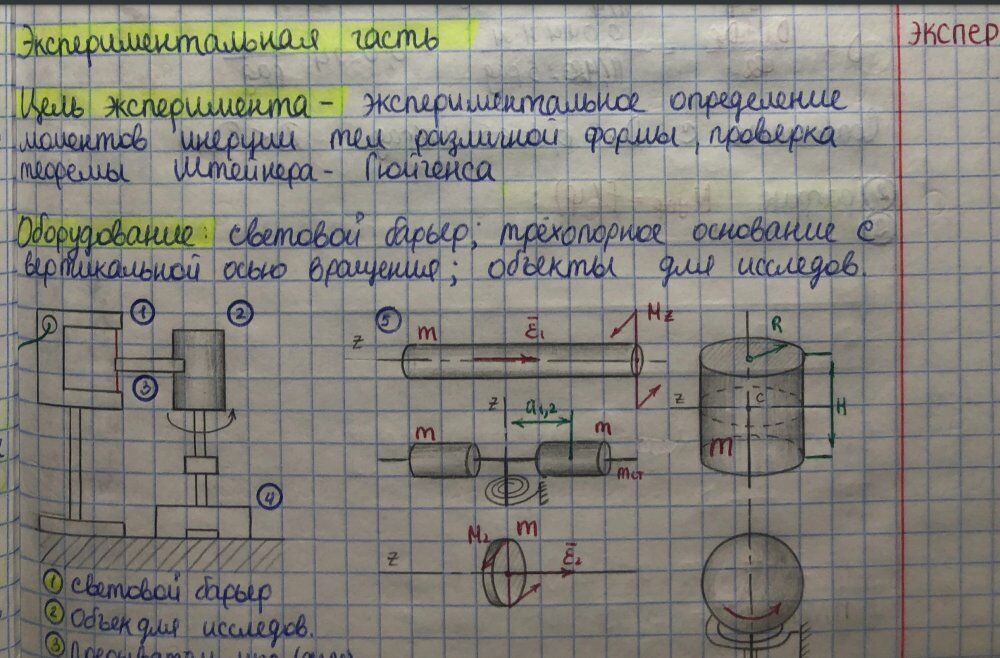 Экспериментальная часть
экспер
Цель эксперимента - экспериментальное определение
моментов инерции тел различной формы, проверка
теоремы Штейнера - Гюйгенса
Оборудование: световой барьер; трёхопорное основание с
вертикальной осью вращения; объекты для исследов.
1
2
3
4
5
z
m
ε̄₁
Mz
R
z
c
H
m
z
a1,2
m
m
mст
z
M2
m
ε̄₂
① Световой барьер
② Объек для исследов.
③